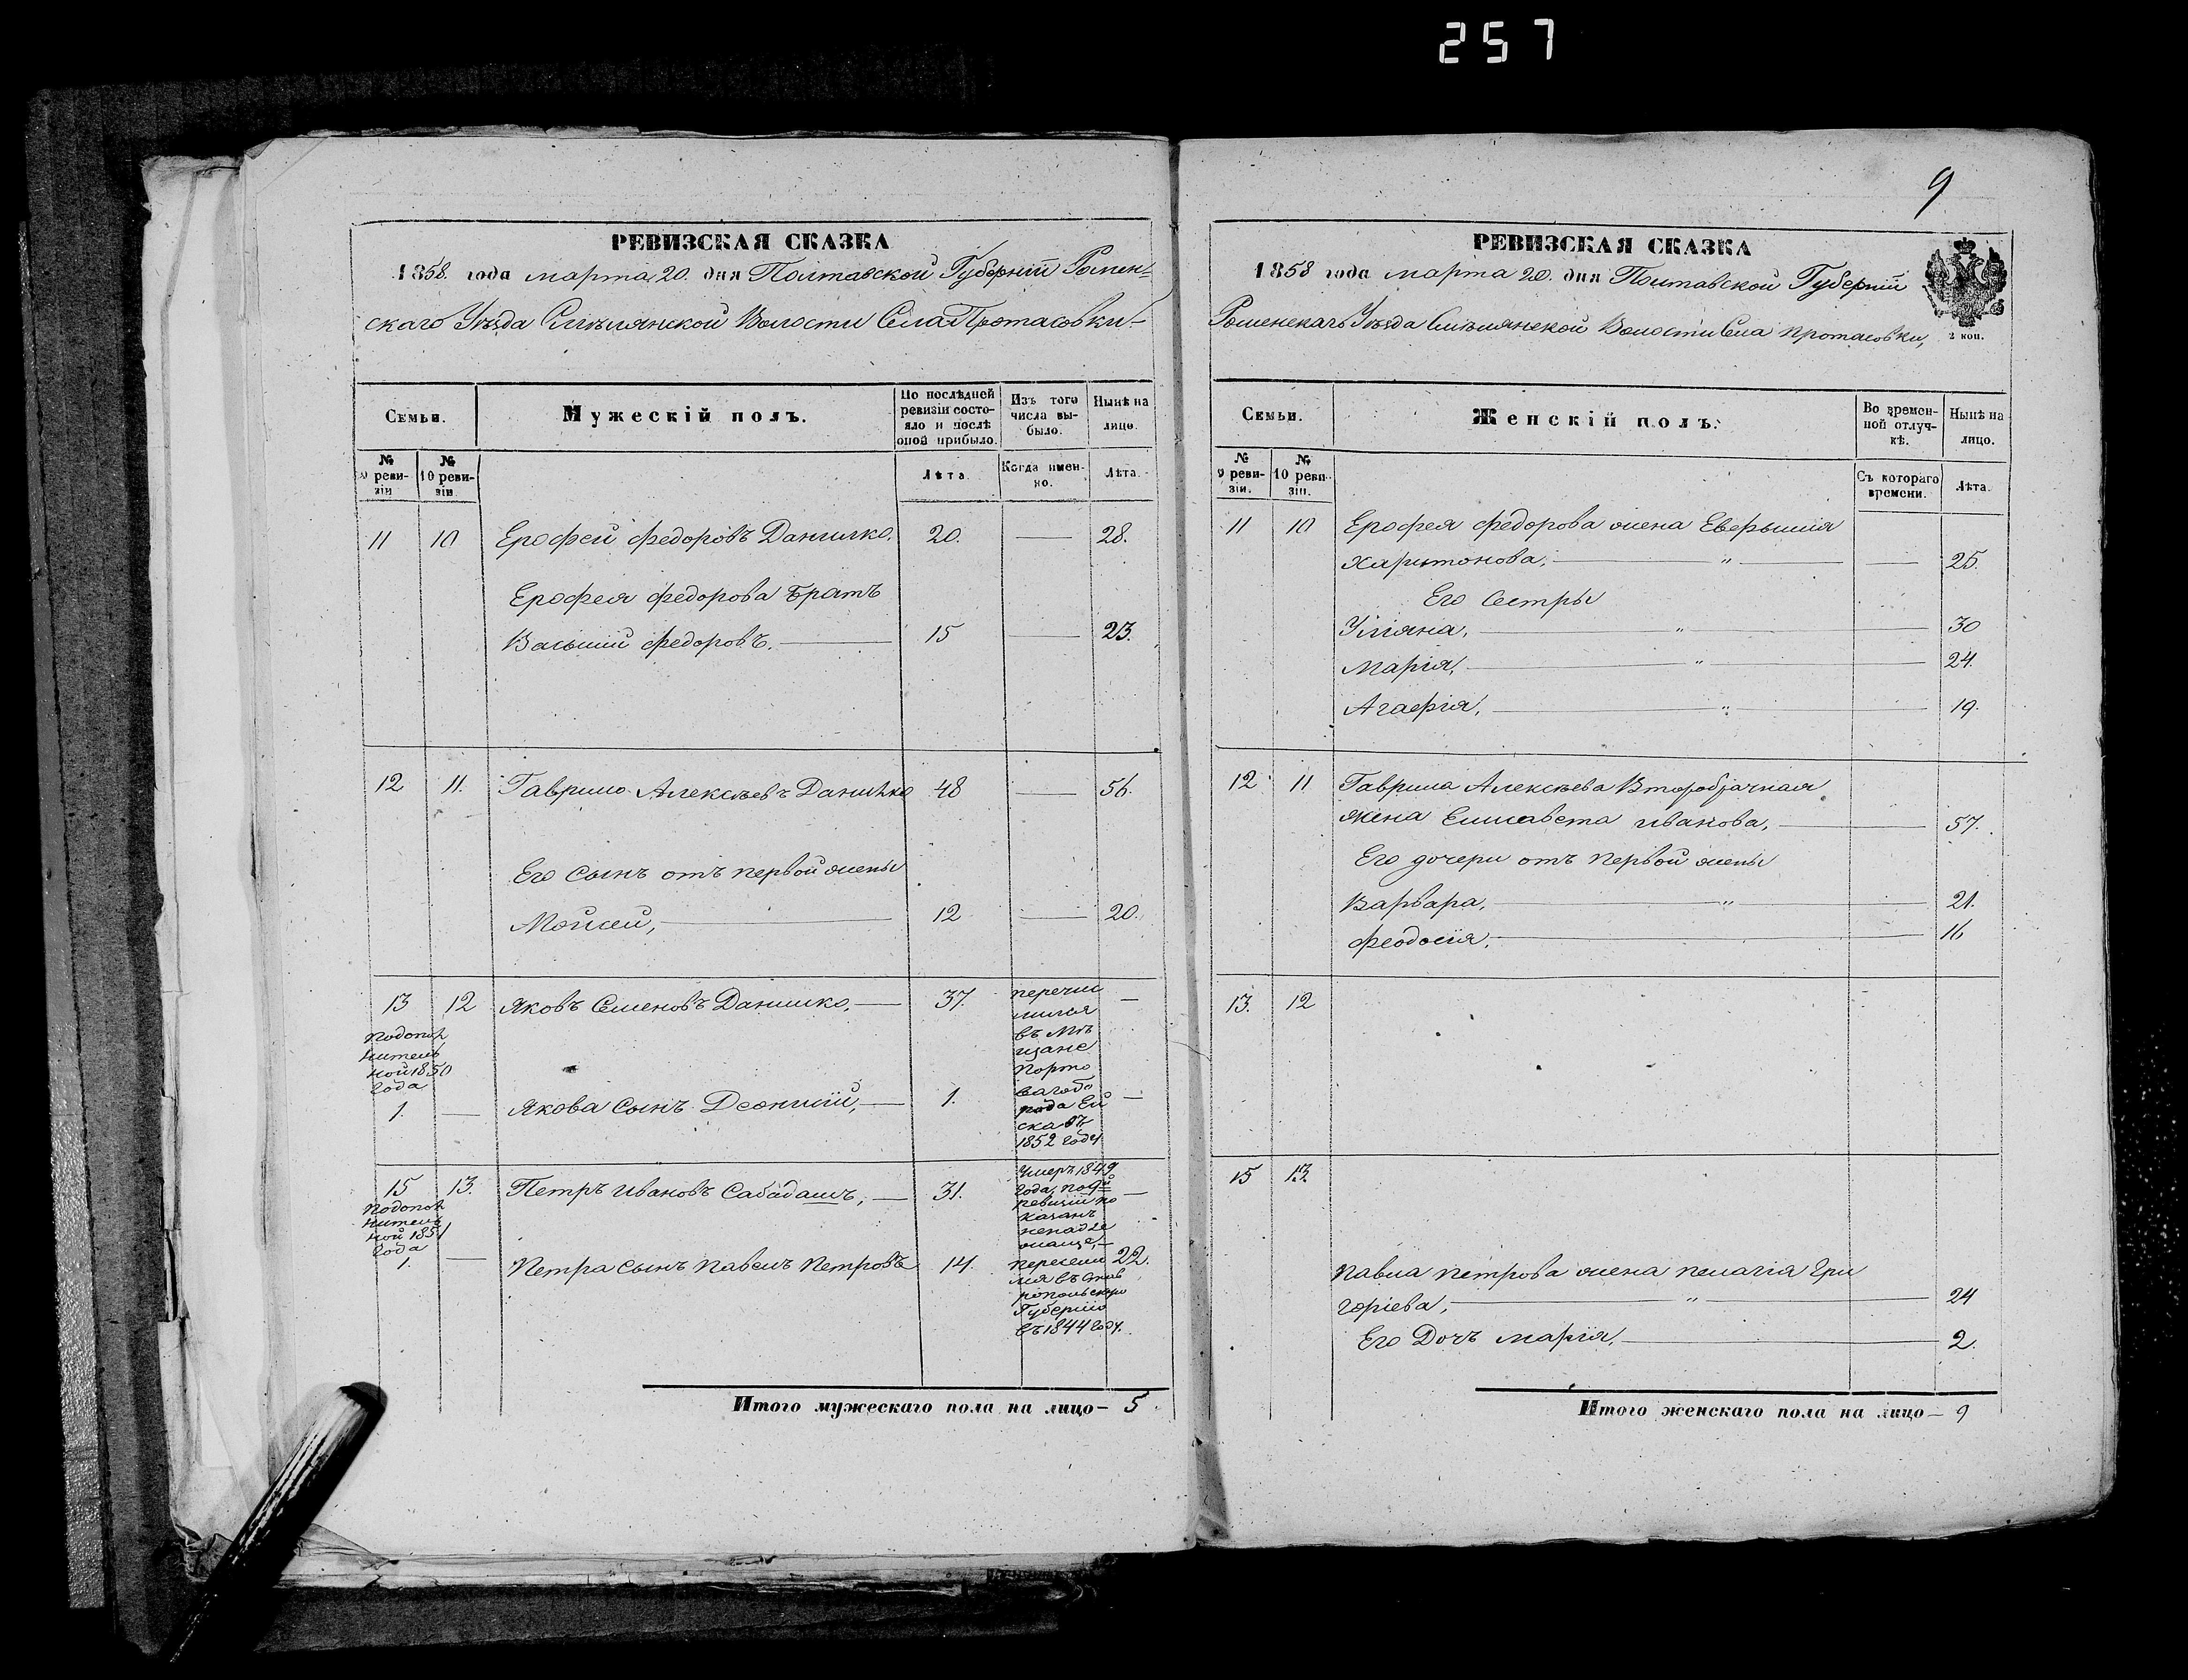 257
РЕВИЗСКАЯ СКАЗКА
1858. года марта 20. дня Полтавской Губерніи Ромен-
скаго Уѣзда Смѣлянской Волости Села Протасовки
Семьи.
Мужескій полъ.
По послѣдней
ревизіи состо-
яло и послѣ
оной прибыло.
Изъ того
числа вы-
было.
Нынѣ на
лицо.
№
9 реви-
зіи
№
10 реви-
зіи
Лѣта
Когда имен-
но.
Лѣта.
11 10 Ерофей Федоровъ Данилко. 20. — 28.
Ерофея Федорова братъ
Василій Федоровъ. — 15 — 23.
12 11. Гаврило Алексѣевъ Данилко 48 — 56.
Его сынъ отъ первой жены
Мойсей, — 12 — 20.
13 12 Яковъ Семеновъ Данилко, — 37. —
перечис
лился
въ мѣ
щане
порто
ваго го
рода Ей
ска въ
1852 году
По допол
нитель
ной 1850
года
1. — Якова сынъ Деонисій, — 1. —
15 13. Петръ Ивановъ Сабадашъ, — 31. —
Умеръ 1849
года, по 9й
ревизіи по
казанъ
ненадле
жаще, —
По допол
нитель
ной 1851
года
1. — Петра сынъ Павелъ Петровъ 14. 22.
переселил
ся въ Став
ропольскую
Губернію
въ 1844 году.
Итого мужескаго пола на лицо — 5.
9
РЕВИЗСКАЯ СКАЗКА
1858 года марта 20. дня Полтавской Губерніи
Роменскаго Уѣзда Смѣлянской Волости Села Протасовки,
2 коп.
Семьи.
Женскій полъ.
Во времен-
ной отлуч-
кѣ.
Нынѣ на
лицо.
№
9 реви-
зіи.
№
10 реви-
зіи.
Съ котораго
времени.
Лѣта.
11 10 Ерофея Федорова жена Евфимія
Харитонова, — „ — — 25.
Его сестры
Уліяна, — „ — 30
Марія, — „ — 24.
Агафія, — „ — 19.
12 11 Гаврила Алексѣева второбрачная
жена Елисавета Иванова, — 57.
Его дочери отъ первой жены
Варвара, — „ — 21.
Феодосія, — 16
13. 12
15 13.
Павла Петрова жена Пелагія Гри
горіева, — „ — 24
Его дочь Марія, — 2.
Итого женскаго пола на лицо — 9